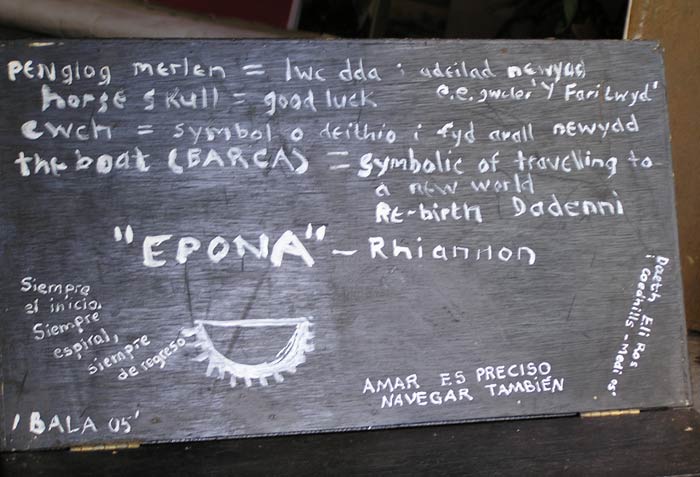 PENglog merlen = lwc dda i adeilad newydd
horse skull = good luck e.e. gweler 'Y Fari Lwyd'
cwch = symbol o deithio i fyd arall newydd
the boat (BARCA) = symbolic of travelling to
a new world
RE-birth Dadenni
"EPONA" - Rhiannon
Siempre
el inicio,
Siempre
espiral,
siempre
de regreso
Daeth Eli Ros
i Coedhills - Medi 05'
AMAR ES PRECISO
NAVEGAR TAMBIÉN
'BALA 05'